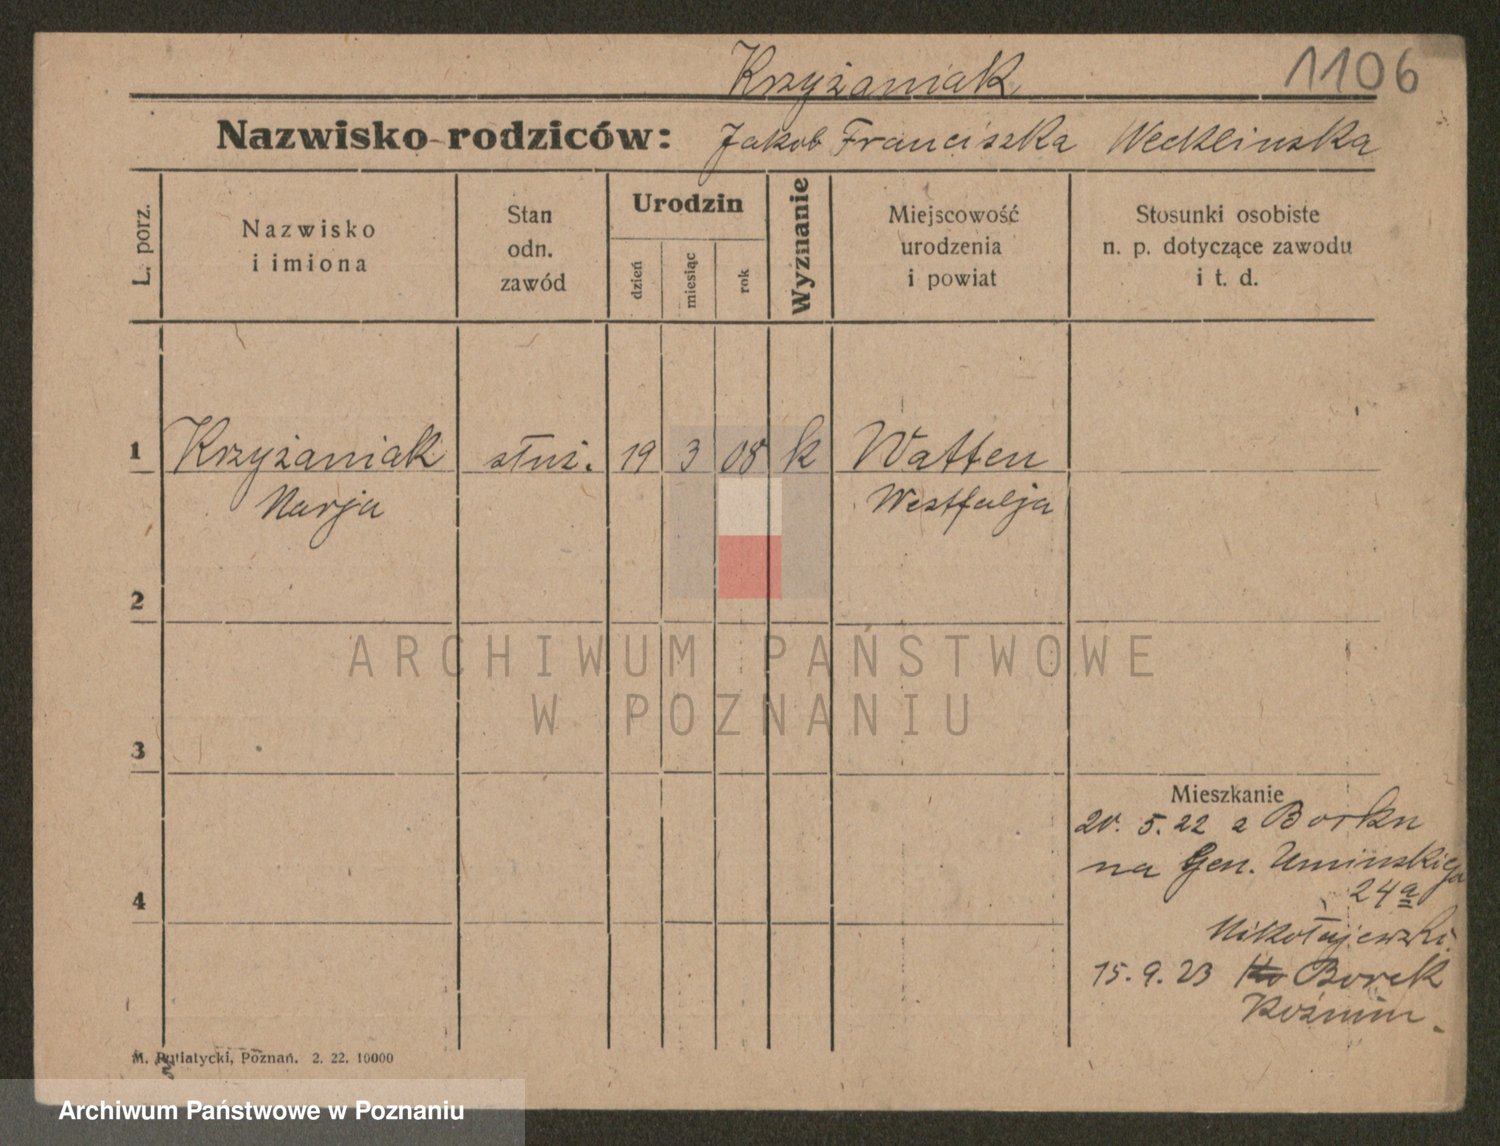 Krzyżaniak
1106
Nazwisko rodziców: Jakob Franciszka Weckliuska
L. porz.
Nazwisko
i imiona
Stan
odn.
zawód
Urodzin
dzień
miesiąc
rok
Wyznanie
Miejscowość
urodzenia
i powiat
Stosunki osobiste
n. p. dotyczące zawodu
i t. d.
1 Krzyżaniak służ. 19 3 08 k Watten
Marja Westfalja
2
ARCHIWUM PAŃSTWOWE
W POZNANIU
3
Mieszkanie
20. 5. 22 z Borku
na Gen. Uminskiego
24a
4
Mikołajewski
15. 9. 23 Borek
Koźmin.
M. Putiatycki, Poznań. 2. 22. 10000
Archiwum Państwowe w Poznaniu